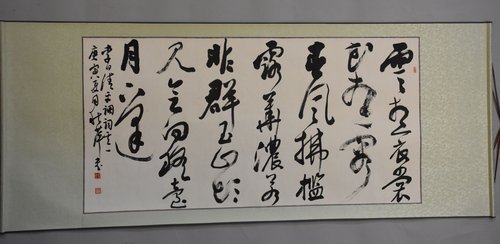 雲想衣裳
花想容
春風拂檻
露華濃若
非群玉山頭
見會向瑤臺
月下逢
李白清平調詞之一
庚寅夏月書